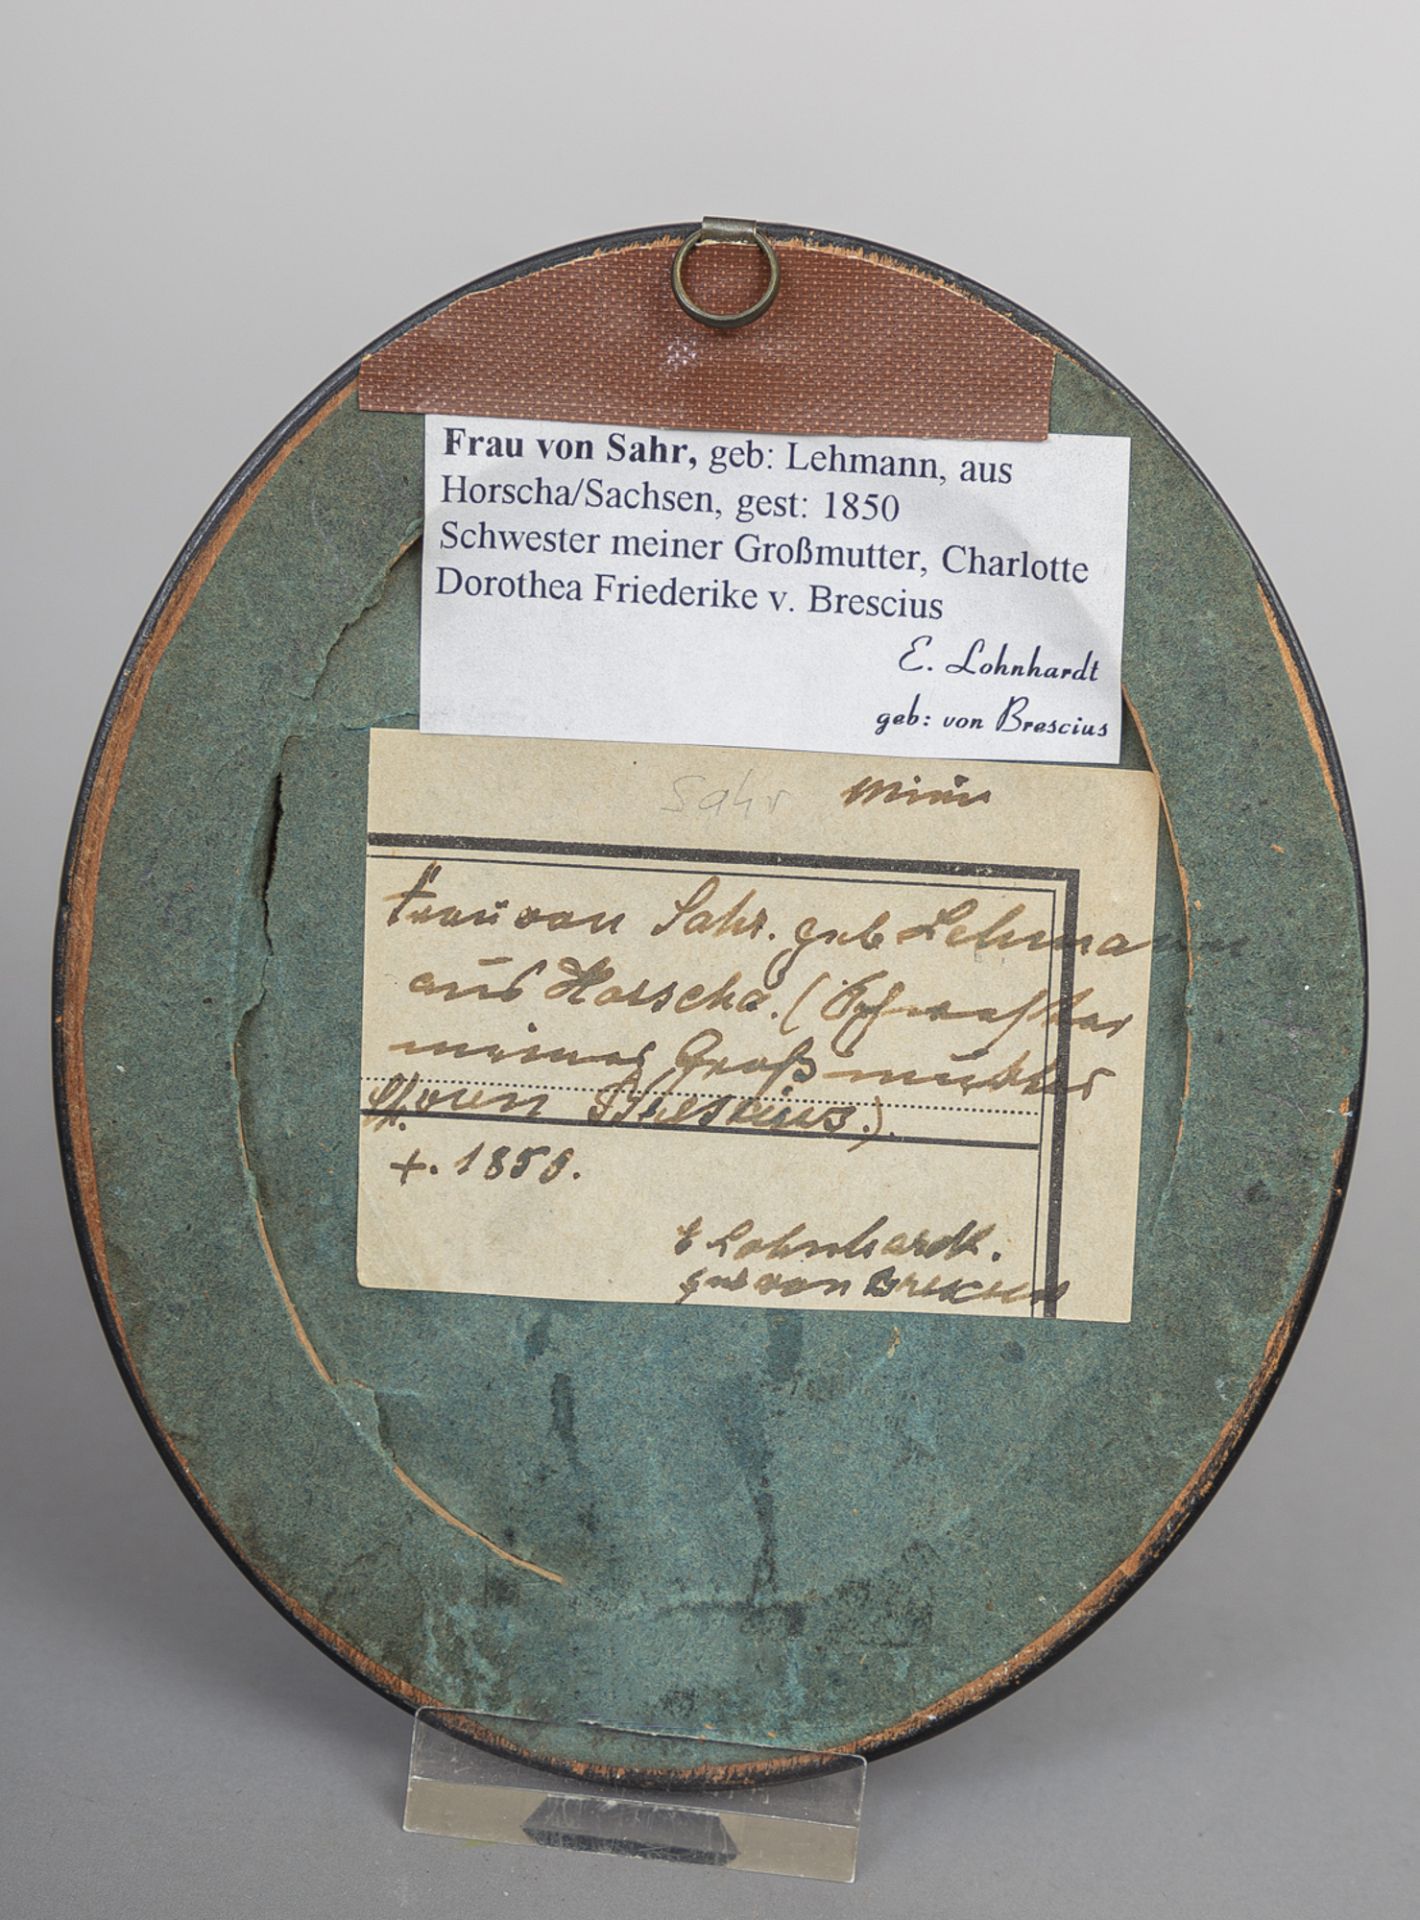 Frau von Sahr, geb: Lehmann, aus
Horscha/Sachsen, gest: 1850
Schwester meiner Großmutter, Charlotte
Dorothea Friederike v. Brescius
E. Lohnhardt
geb: von Brescius
Sahr
Frau von Sahr. geb Lehmann
aus Horscha. (Schwester
meiner Großmutter
von Brescius.).
+. 1850.
E Lohnhardt.
geb von Brescius